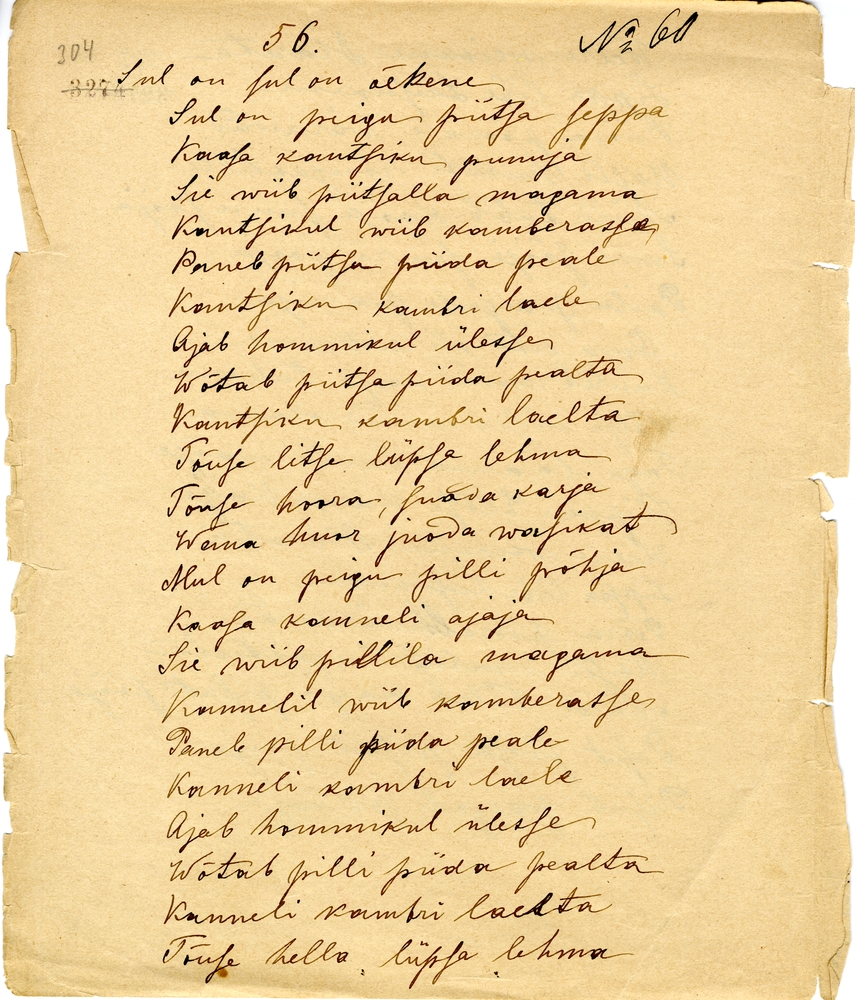 304
56.
№ 60
3274
Sul on sul on õekene
Sul on peigu piitsa seppa
Kaasa kantsiku punuja
Sie wiib piitsalla magama
Kantsikul wiib kamberasse
Paneb piitsa piida peale
Kantsiku kambri laele
Ajab hommikul ülesse
Wõtab piitsa piida pealta
Kantsiku kambri laelta
Tõuse litse lüpsa lehma
Tõuse hoora, suada karja
Wana huor juoda wasikat
Mul on peigu pilli põhja
Kaasa kanneli ajaja
Sie wiib pillila magama
Kannelil wiib kamberasse
Paneb pilli piida peale
Kanneli kambri laele
Ajab hommikul ülesse
Wõtab pilli piida pealta
Kanneli kambri laelta
Tõuse hella, lüpsa lehma